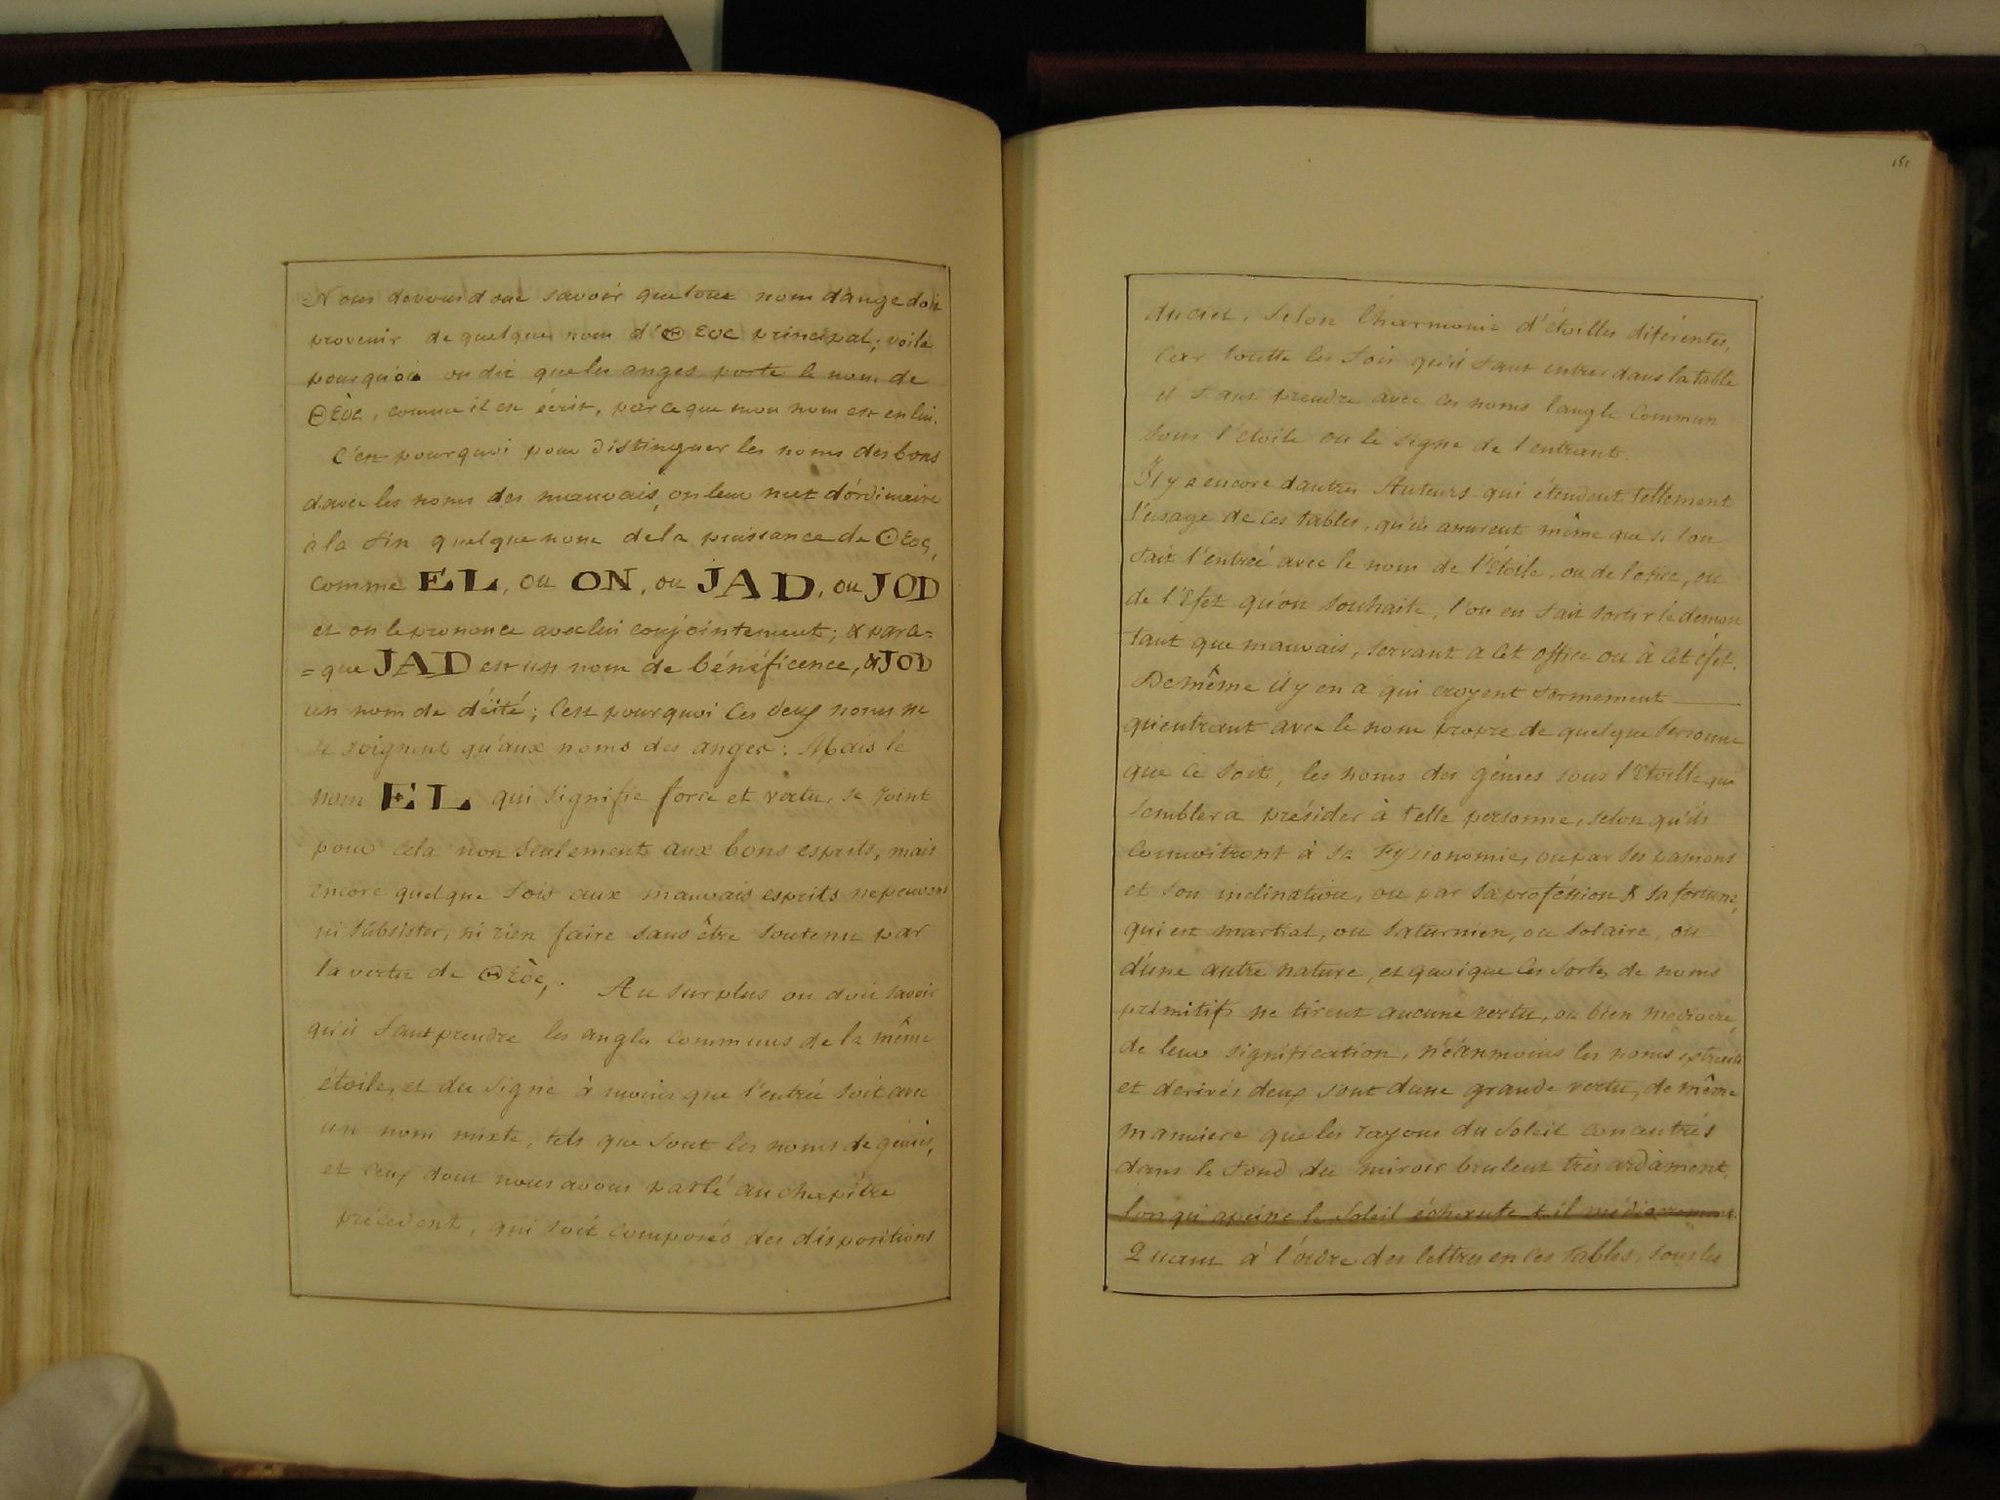 Nous devons donc savoir que tout nom d'ange doit
provenir de quelque nom d'Θεος principal; voila
pourquoi on dit que les anges porte le nom de
Θεὸς, comme il est écrit, parce que mon nom est en lui.
C'est pourquoi pour distinguer les noms des bons
d'avec les noms des mauvais, on leur met d'órdinaire
à la fin quelque nom de la puissance de Θεος,
comme EL, ou ON, ou JAD, ou JOD
et on le prononce avec lui conjointement; & parce=
=que JAD est un nom de bénéficence, & JOD
un nom de déité; c'est pourquoi ces deux noms ne
se joignent qu'aux noms des anges: Mais le
nom EL qui signifie force et vertu, se joint
pour cela non seulement aux bons esprits, mais
encore quelque fois aux mauvais esprits ne peuvent
ni subsister, ni rien faire sans être soutenu par
la vertu de Θεὸς,. Au surplus on doit savoir
qu'il faut prendre les angles communs de la même
étoile, et du signe à moins que l'entrée soit avec
un nom mixte, tels que sont les noms de génies,
et ceux dont nous avons parlé au chapitre
précédent, qui soit composés des dispositions
151
du ciel, selon l'harmonie d'étoilles diférentes,
Car toutte les fois qu'il faut entrer dans la table
il faut prendre avec ces noms l'angle commun
sous l'étoile ou le signe de l'entrant.
Il y a encore d'autres Auteurs qui étendent tellement
l'usage de ces tables, qu'ils assurent même que si l'on
fait l'entrée avec le nom de l'Étoile, ou de l'ofice, ou
de l'Efet qu'on souhaite, l'on en fait sortir le démon
tant que mauvais, servant a cet office ou à cet éfet.
De même il y en a qui croyent fermement
qu'entrant avec le nom propre de quelque Personne
que ce soit, les noms des génies sous l'Etoille qui
semblera présider à telle personne, selon qu'ils
connoitront à sa Fysionomie, ou par ses passions
et son inclination, ou par sa proféssion & sa fortune,
qui est martial, ou saturnien, ou solaire, ou
d'une autre nature, et quoique ces sortes de noms
primitifs ne tirent aucune vertu, ou bien mediocre,
de leur signification, néanmoins les noms extraits
et dérivés deux sont d'une grande vertu, de même
manniere que les rayons du Soleil concentrés
dans le fond du miroir brulent très ardàment,
lors qu'apeine le Soleil échaufe t-il médiocrement.
Quant à l'órdre des lettres en ces Tables, sous les